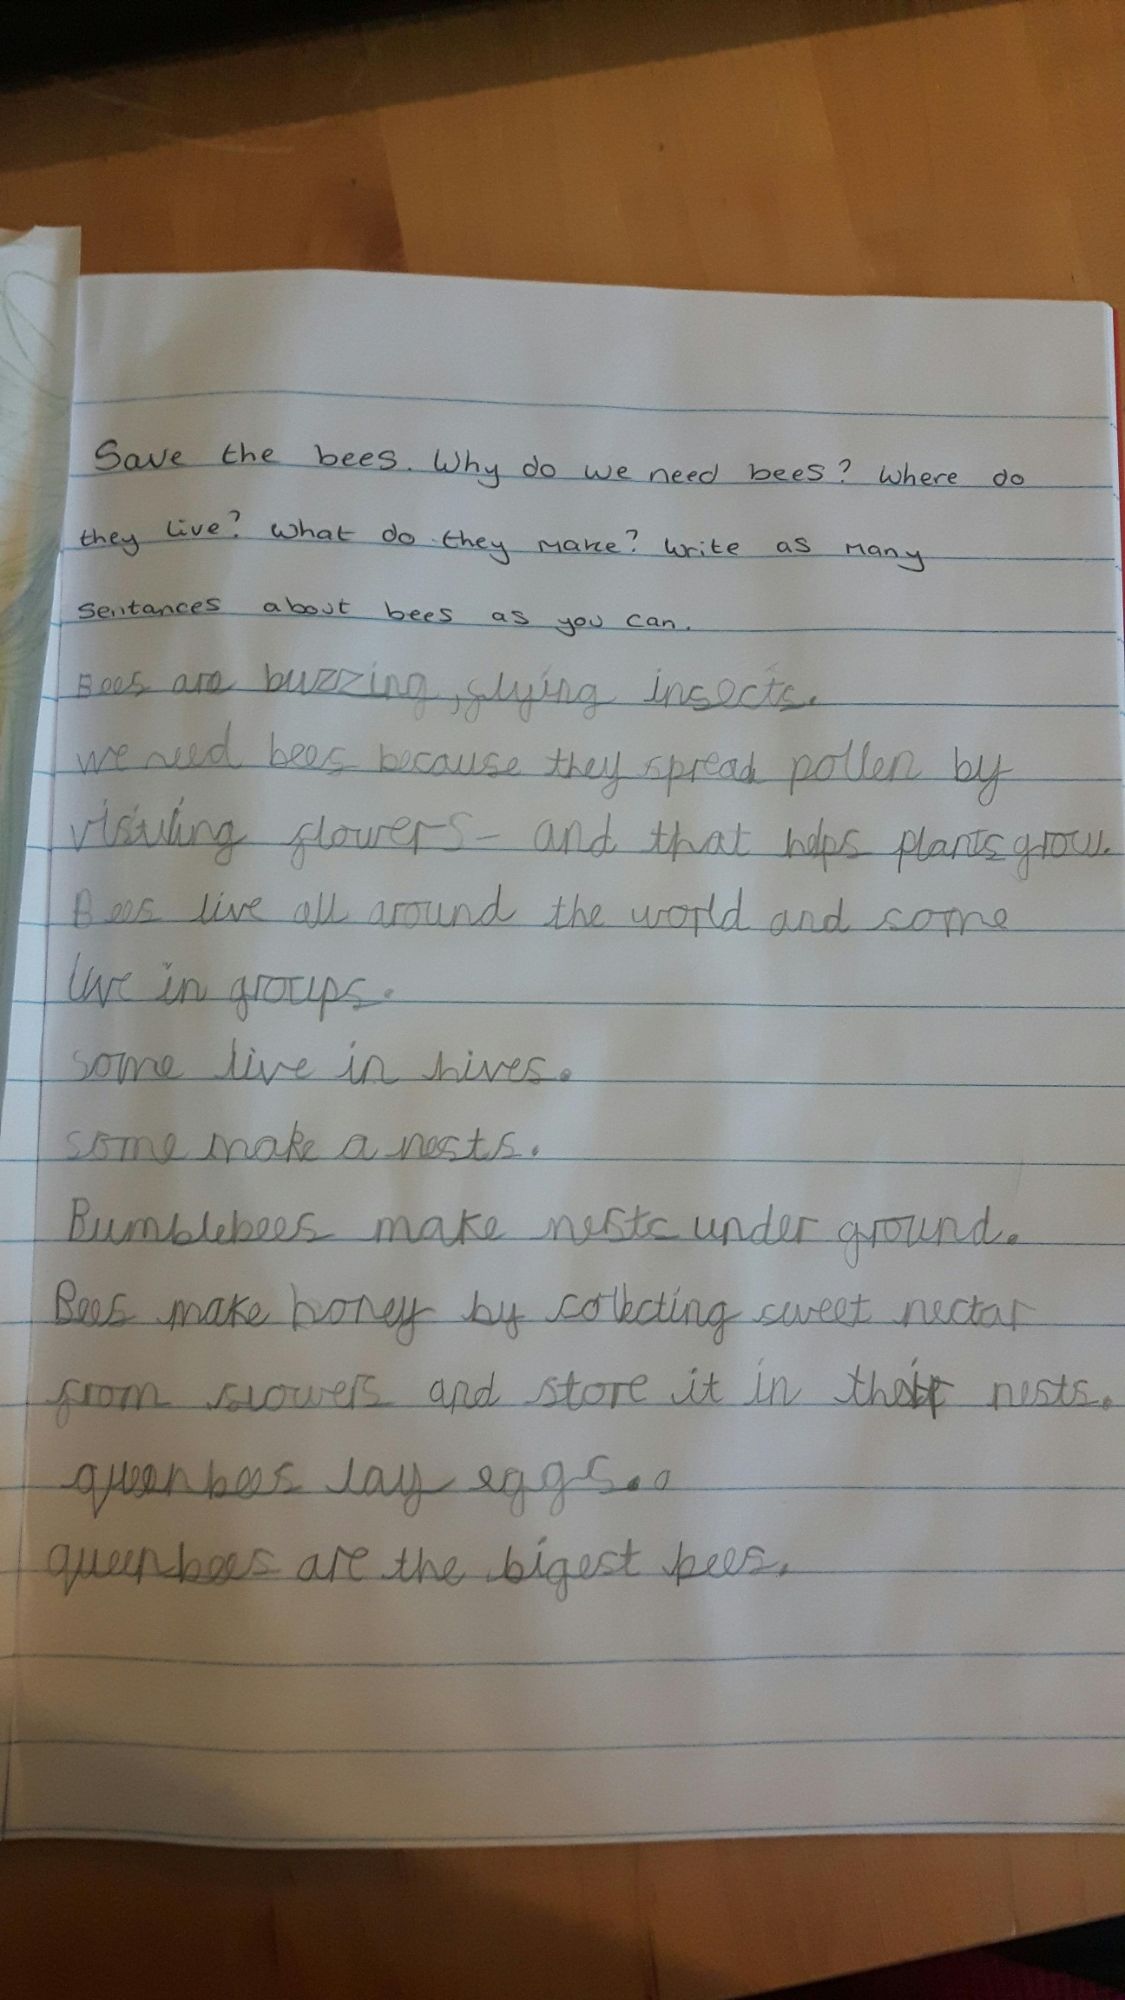 Save the bees. Why do we need bees? Where do
they live? What do they make? Write as many
sentances about bees as you can.
Bees are buzzing, flying insects.
we need bees because they spread pollen by
visiting flowers - and that helps plants grow.
Bees live all around the world and some
live in groups.
some live in hives.
some make a nests.
Bumblebees make nests under ground.
Bees make honey by collecting sweet nectar
from flowers and store it in their nests.
queenbees lay eggs.
queenbees are the bigest bees.